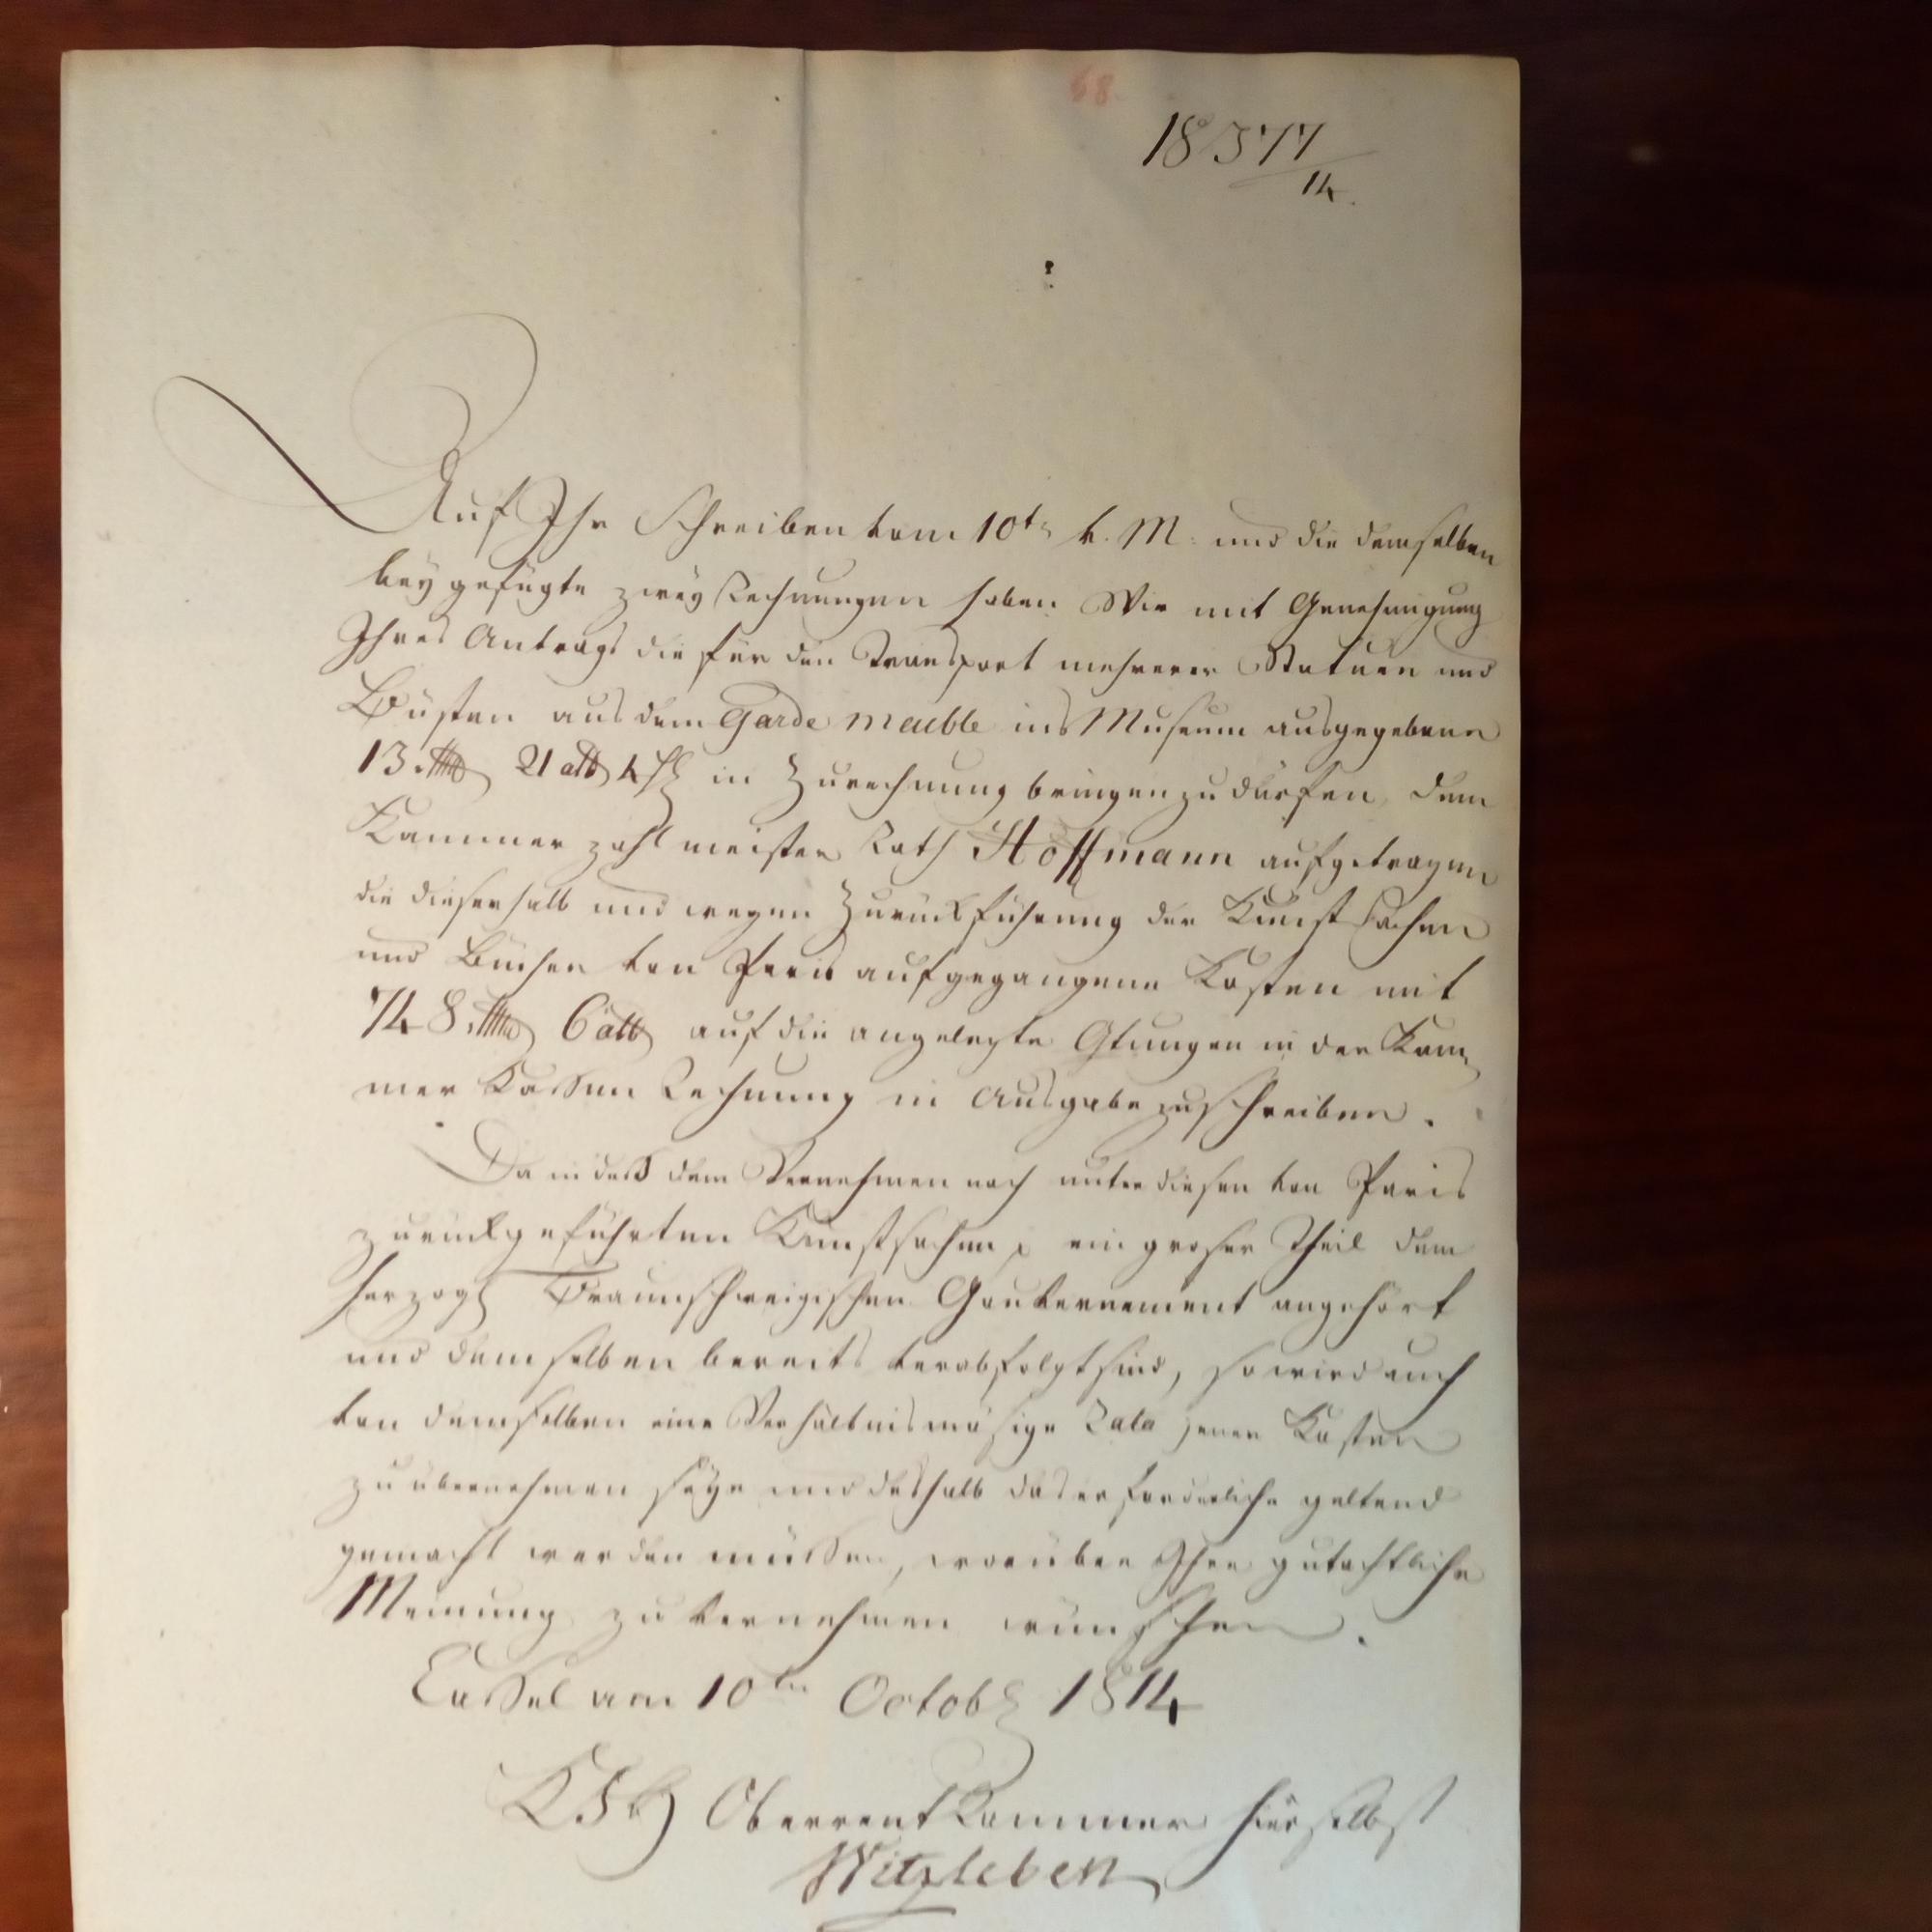 68.
18577/14.
Auf Ihr Schreiben vom 10ts v. M. und die demselben
beygefügte zwey Rechnungen haben Wir mit Genehmigung
Ihres Antrags die für den Transport mehrerer Statuen und
Büsten aus dem Garde meuble ins Museum ausgegebene
13 rthlr 21 alb 4 hlr in Zurechnung bringen zu dürfen, dem
Kammerzahlmeister Rath Hoffmann aufgetragen
die dieserhalb und wegen Zurückführung der Kunst Sachen
und Bücher von Paris aufgegangene Kosten mit
748 rthlr 6 alb auf die angelegte in der Kam
mer Kassen Rechnung in Ausgabe zu schreiben.
Da indeß dem Vernehmen nach unter diesen von Paris
zurückgeführten Kunstsachen ein groser Theil dem
Herzogl Braunschweigischen Gouvernement angehört
und demselben bereits verabfolgt sind, so wird auch
von demselben eine Verhältnismäsige Rata jener Kosten
zu übernehmen seyn und deshalb das erforderliche geltend
gemacht werden müssen, worüber Ihre gutachtliche
Meinung zu vernehmen wünschen.
Cassel am 10ten Octobr 1814
KFH Oberrentkammer hierselbst
Witzleben